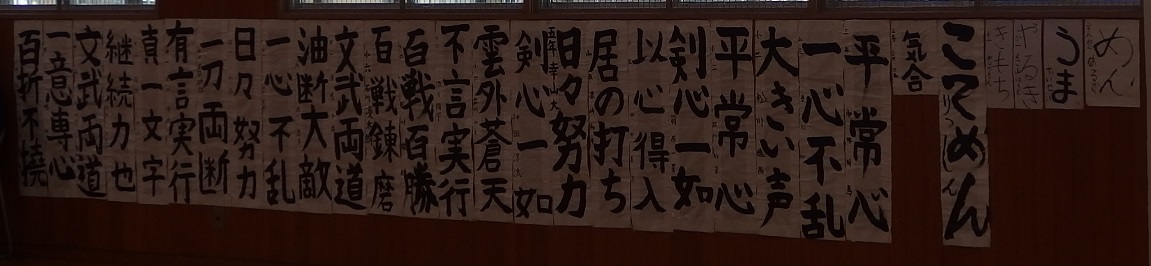 めん
うま
やるき
きもち
こてめん
気合
平常心
一心不乱
大きい声
平常心
剣心一如
以心得入
居の打ち
日々努力
剣心一如
雲外蒼天
不言実行
百戦百勝
百戦錬磨
文武両道
油断大敵
一心不乱
日々努力
一刀両断
有言実行
真一文字
継続力也
文武両道
一意専心
百折不撓